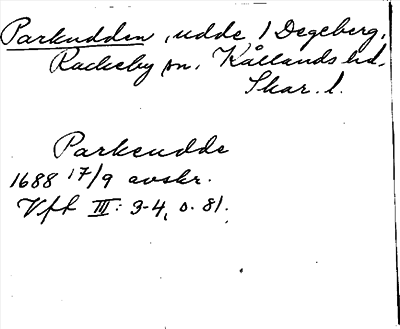 Parkudden, udde / Degeberg,
Rackeby sn, Kållands hd.
Skar. l.
Parkeudde
1688 17/9 avskr.
Vft III: 3-4, s. 81.